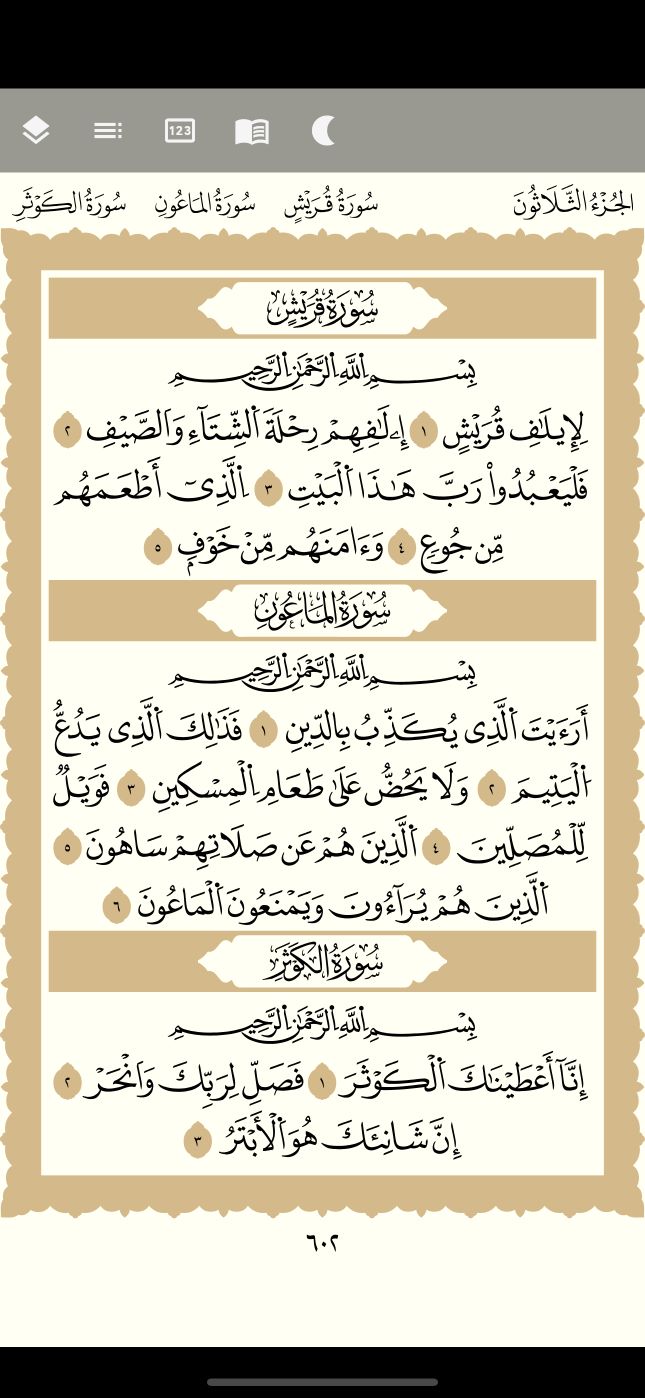 123
الجُزْءُ الثَّلَاثُونَ سُورَةُ قُرَيْشٍ سُورَةُ المَاعُونِ سُورَةُ الكَوْثَرِ
سُورَةُ قُرَيْشٍ
بِسْمِ اللَّهِ الرَّحْمَٰنِ الرَّحِيمِ
لِإِيلَٰفِ قُرَيْشٍ ١ إِۦلَٰفِهِمْ رِحْلَةَ اَ۬لشِّتَآءِ وَالصَّيْفِ ٢
فَلْيَعْبُدُواْ رَبَّ هَٰذَا اَ۬لْبَيْتِ ٣ اِ۬لَّذِىٓ أَطْعَمَهُم
مِّن جُوعٍ ٤ وَءَامَنَهُم مِّنْ خَوْفٍۢ ٥
سُورَةُ المَاعُونِ
بِسْمِ اللَّهِ الرَّحْمَٰنِ الرَّحِيمِ
أَرَءَيْتَ اَ۬لَّذِى يُكَذِّبُ بِالدِّينِ ١ فَذَٰلِكَ اَ۬لَّذِى يَدُعُّ
اُ۬لْيَتِيمَ ٢ وَلَا يَحُضُّ عَلَىٰ طَعَامِ اِ۬لْمِسْكِينِ ٣ فَوَيْلٌ
لِّلْمُصَلِّينَ ٤ اَ۬لَّذِينَ هُمْ عَن صَلَاتِهِمْ سَاهُونَ ٥
اَ۬لَّذِينَ هُمْ يُرَآءُونَ وَيَمْنَعُونَ اَ۬لْمَاعُونَ ٦
سُورَةُ الكَوْثَرِ
بِسْمِ اللَّهِ الرَّحْمَٰنِ الرَّحِيمِ
إِنَّآ أَعْطَيْنَٰكَ اَ۬لْكَوْثَرَ ١ فَصَلِّ لِرَبِّكَ وَانْحَرْ ٢
إِنَّ شَانِئَكَ هُوَ اَ۬لْأَبْتَرُ ٣
٦٠٢